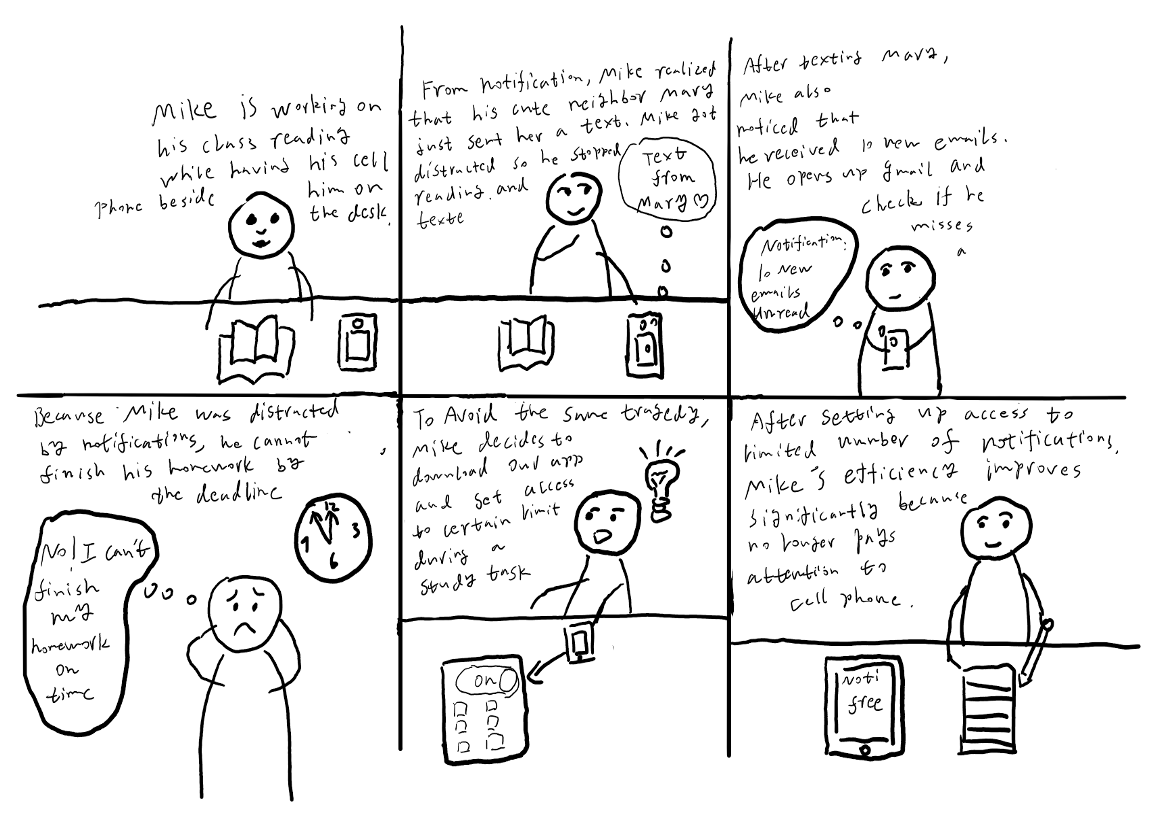 Mike is working on
his class reading
while having his cell
phone beside him on
the desk.
From notification, Mike realized
that his cute neighbor Mary
just sent her a text. Mike got
distracted so he stopped
reading. and
texte
Text
from
Mary ♡
After texting Mary,
Mike also
noticed that
he received 10 new emails.
He opens up gmail and
check if he
misses
a
Notification:
10 new
emails
unread
Because Mike was distracted
by notifications, he cannot
finish his homework by
the deadline
No! I can't
finish
my
homework
on
time
12
3
6
9
To Avoid the same tragedy,
Mike decides to
download our app
and set access
to certain limit
during a
study task
on
After setting up access to
limited number of notifications,
Mike's efficiency improves
significantly because
no longer pays
attention to
cell phone.
Noti
free